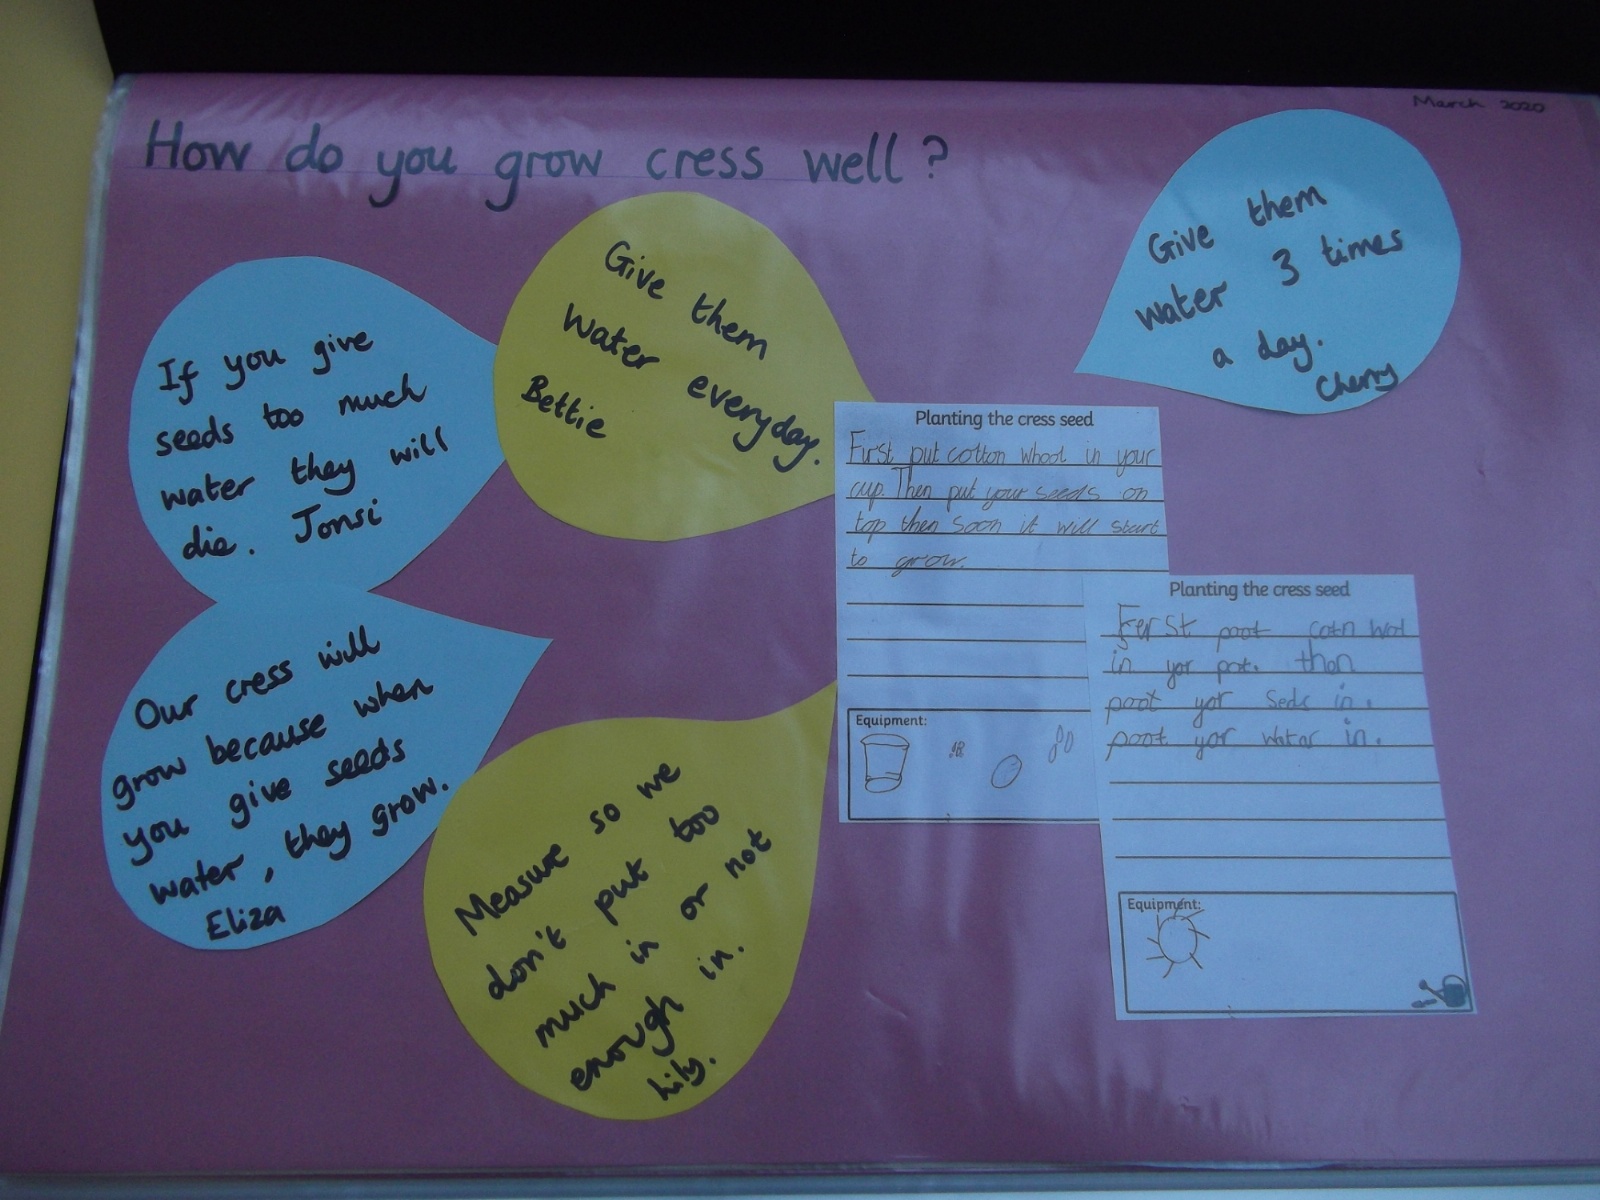 March 2020
How do you grow cress well?
If you give
seeds too much
water they will
die. Jonsi
Give them
water everyday.
Bettie
Give them
water 3 times
a day.
Cherry
Our cress will
grow because when
you give seeds
water, they grow.
Eliza
Measure so we
don't put too
much in or not
enough in.
Lily.
Planting the cress seed
First put cotton whool in your
cup. Then put your seeds on
top then soon it will start
to grow.
Equipment:
Planting the cress seed
Ferst poot cotn wol
in yor pot. then
poot yor seds in.
poot yor water in.
Equipment: